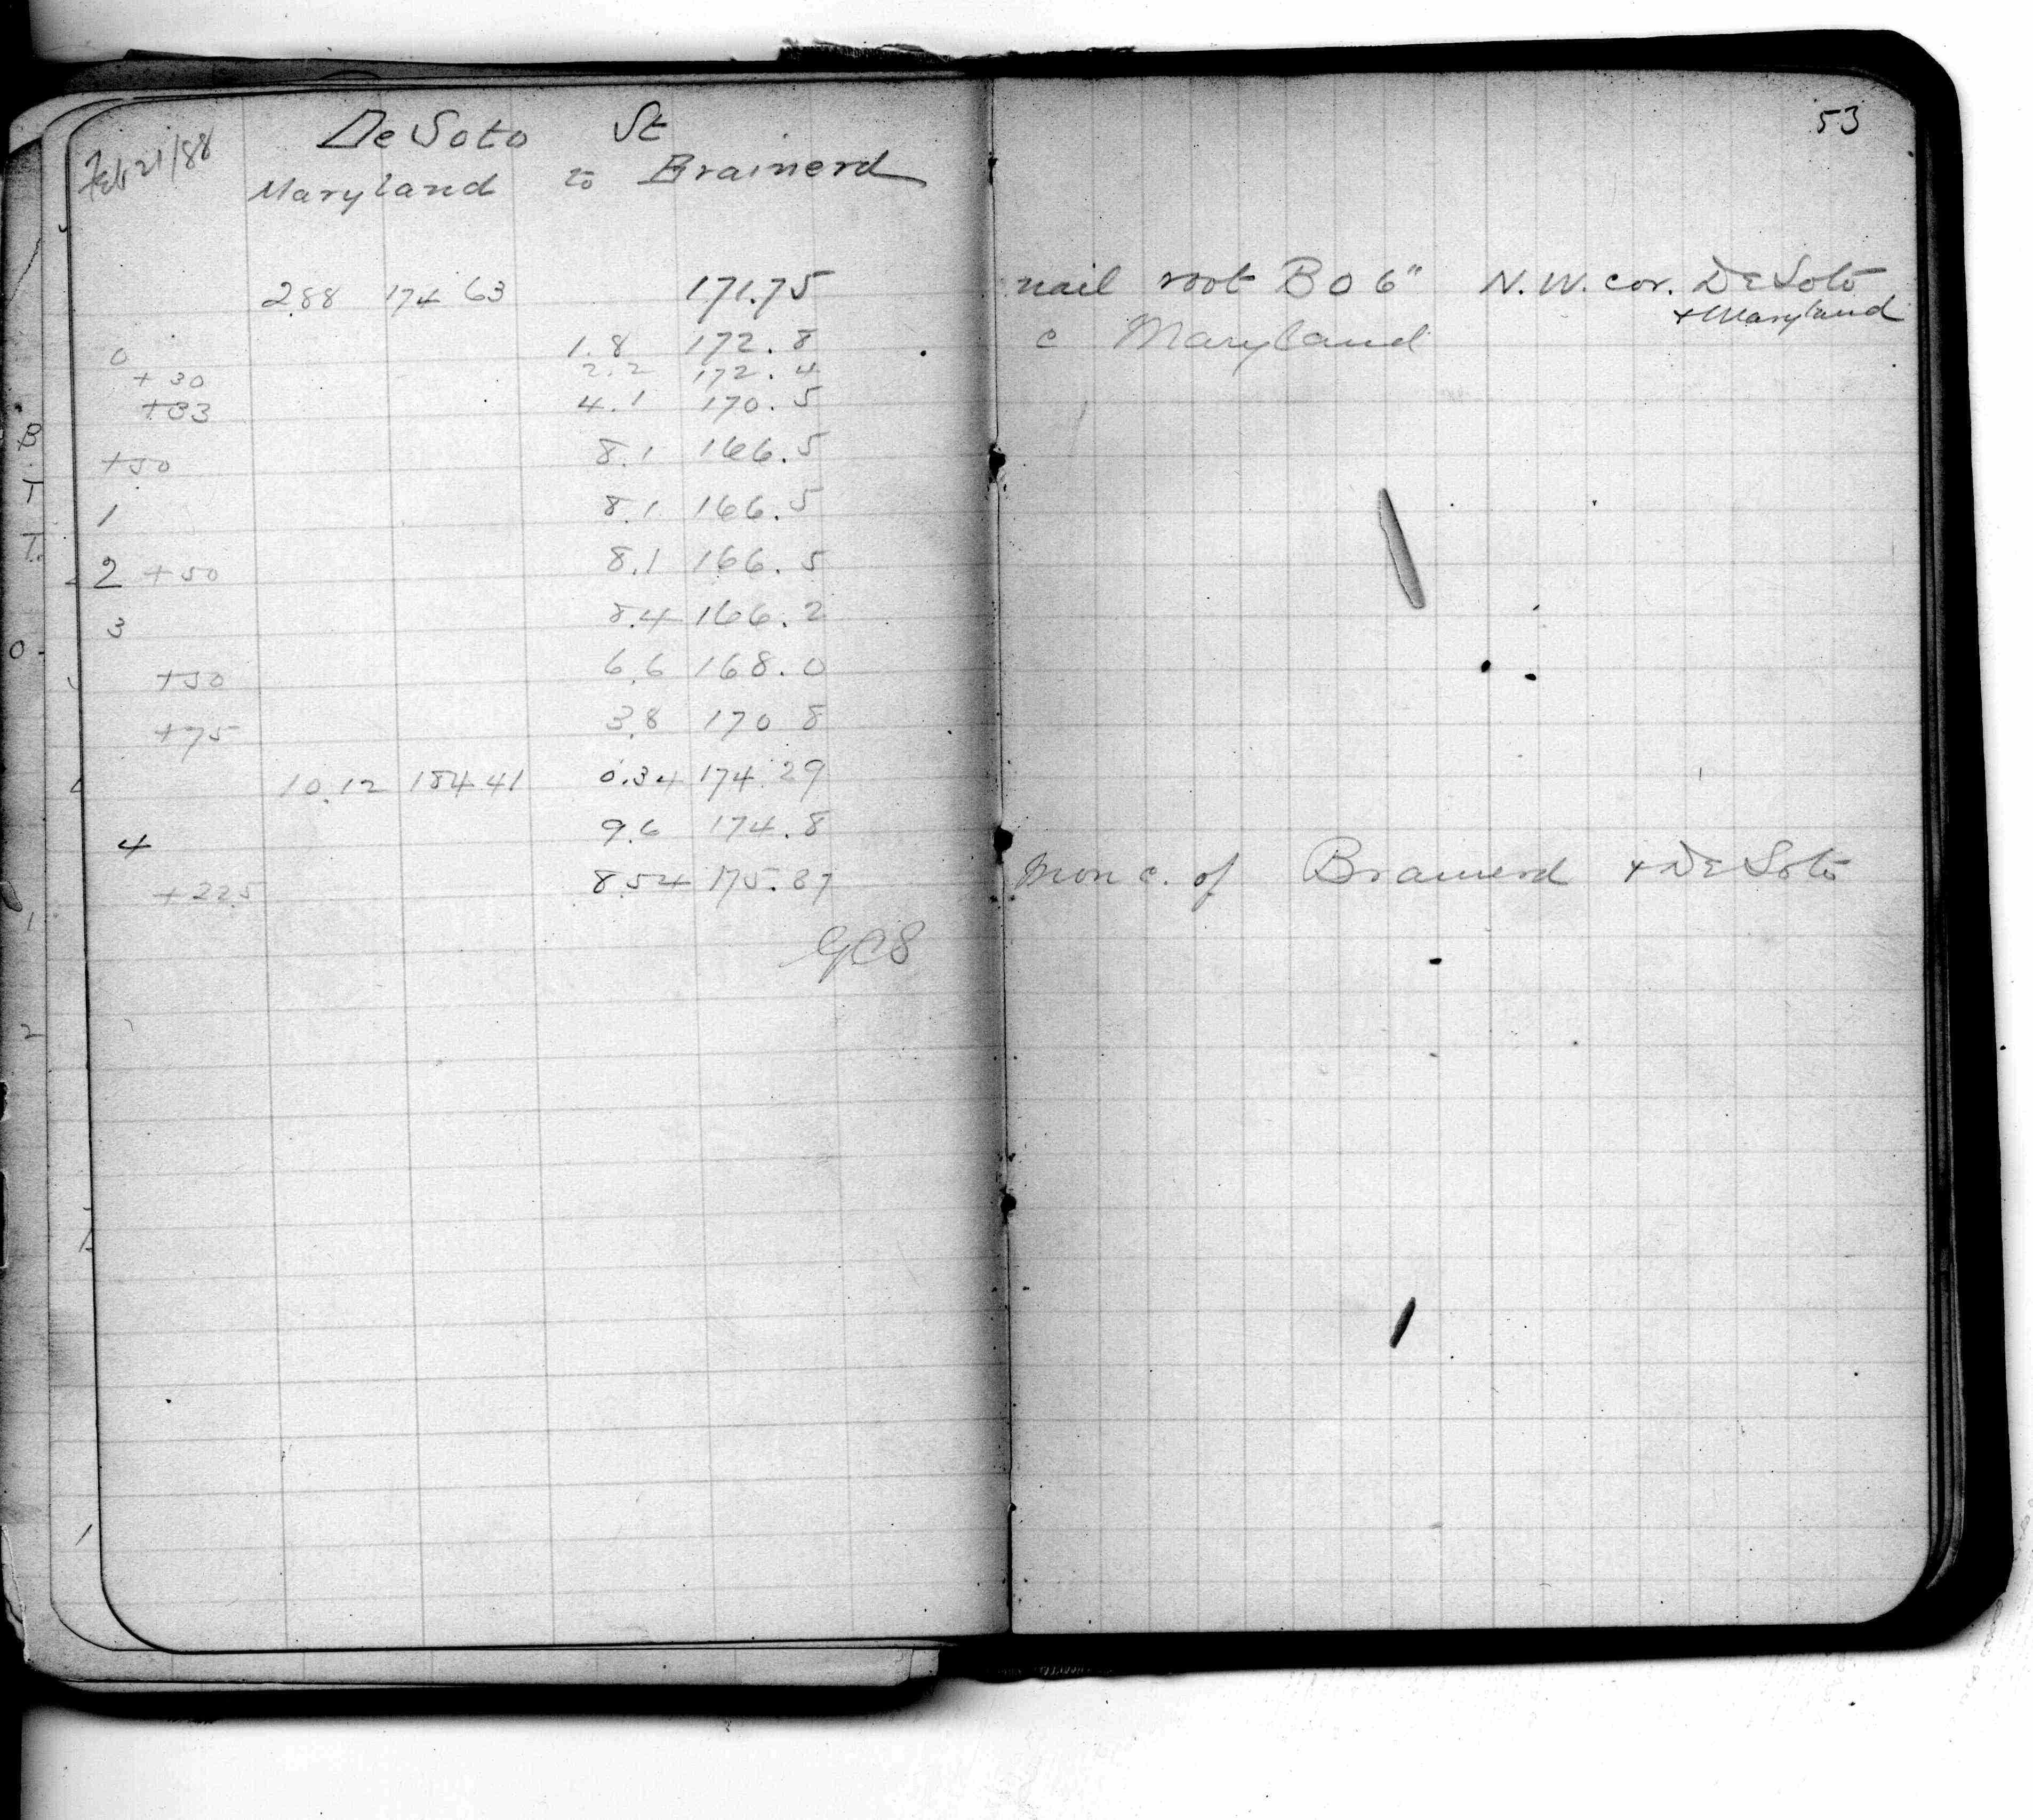 Feb 21/88 DeSoto St
Maryland to Brainerd
2.88 174 63 171.75
0 1.8 172.8
+30 2.2 172.4
+33 4.1 170.5
+50 8.1 166.5
1 8.1 166.5
2 +50 8.1 166.5
3 8.4 166.2
+50 6.6 168.0
+75 3.8 170 8
10.12 184 41 0.34 174.29
4 9.6 174.8
+22.5 8.54 175.87
53
nail root B O 6" N.W. cor. DeSoto
+ Maryland
c Maryland
Mon c. of Brainerd + DeSoto
B
T
T.
0
1
2